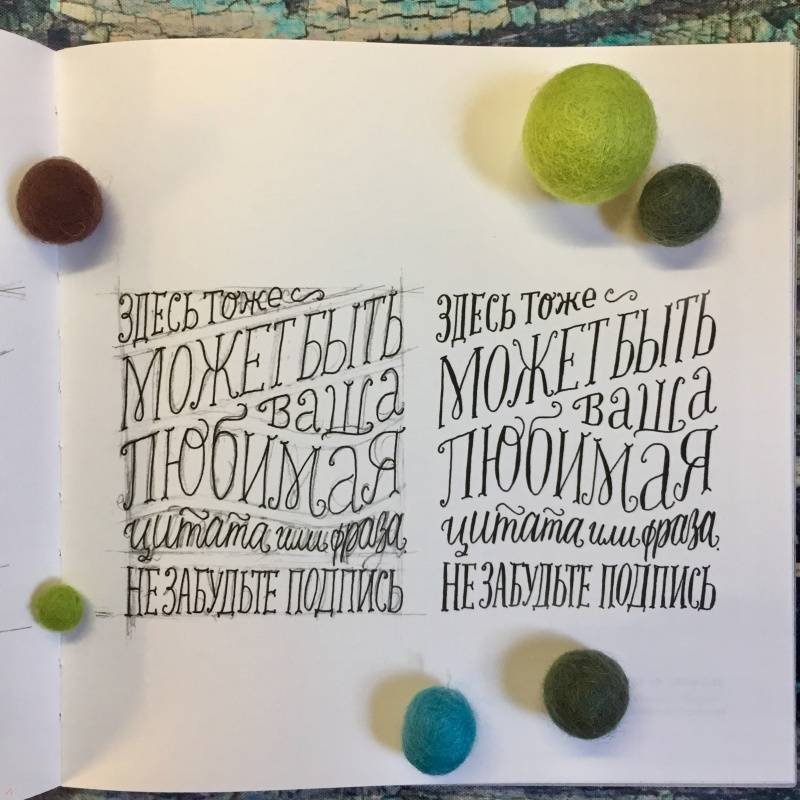 ЗДЕСЬ тоже
МОЖЕТ БЫТЬ
ваша
ЛЮБИМАЯ
цитата или фраза.
НЕ ЗАБУДЬТЕ ПОДПИСЬ
ЗДЕСЬ тоже
МОЖЕТ БЫТЬ
ваша
ЛЮБИМАЯ
цитата или фраза.
НЕ ЗАБУДЬТЕ ПОДПИСЬ